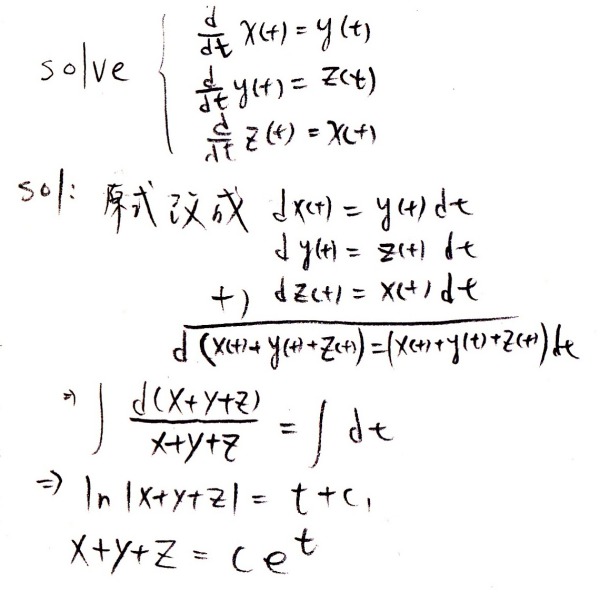 solve { d/dt x(t) = y(t)
d/dt y(t) = z(t)
d/dt z(t) = x(t)
sol: 原式改成 dx(t) = y(t) dt
dy(t) = z(t) dt
+) dz(t) = x(t) dt
d(x(t)+y(t)+z(t)) = (x(t)+y(t)+z(t)) dt
⇒ ∫ d(x+y+z)/x+y+z = ∫ dt
⇒ ln |x+y+z| = t + c₁
x+y+z = ce^t